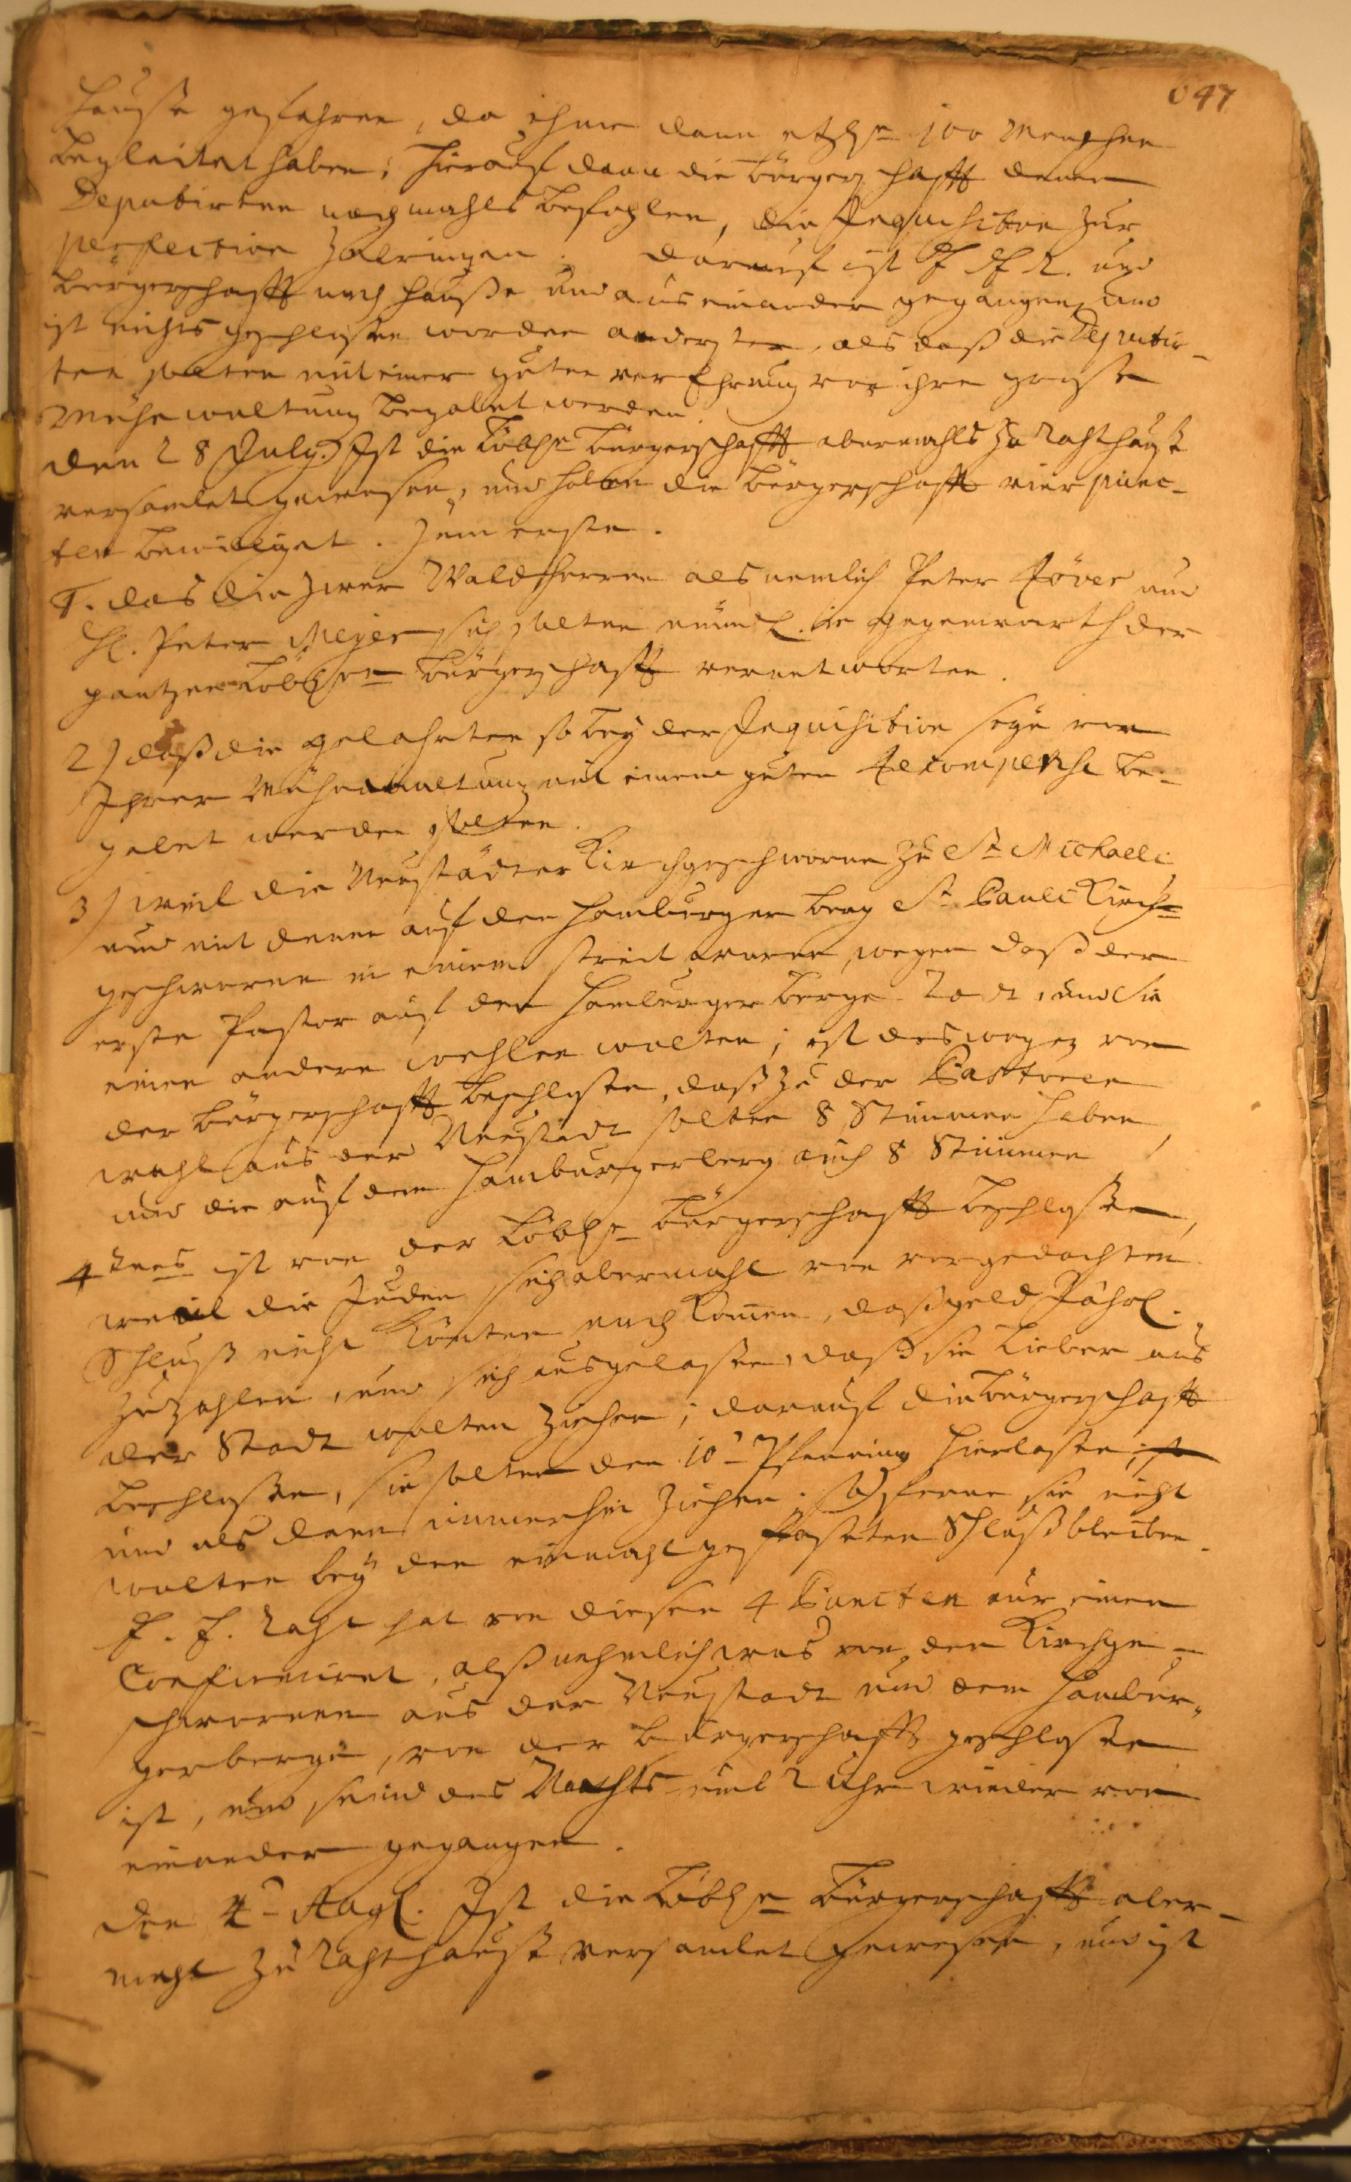 647
Hauße gefahren, da ihme dann etzl. 100 Menschen
begleitet haben; hierauf dann die Bürgerschafft denen
Deputirten nochmahls befohlen, die Inquisition zur
perfection zu bringen. Darauf ist E. E. R. und
Bürgerschafft nach Hauße und aus einander gegangen, und
ist nichts geschloßen worden anderster, als daß die Deputir-
ten solten mit einer guten verEhrung vor ihre große
Mühewaltung begabet werden
den 28 July. Ist die Löbl. Bürgerschafft abermahls zu Rahthauße
versamlet gewesen, und haben die Bürgerschafft vier punc-
ten bewilliget. Zum ersten.
1. das die zwey Waldherren als nemlich Peter Röver und
H. Peter Meyer sich solten mündl. in gegenwarth der
gantzen Löblen Bürgerschafft verantworten.
2) daß die gelahrten so bey der Inquisition seyn vor
Ihrer Mühewaltung mit einem guten Recompensе be-
gabet werden solten.
3) weil die Neustädter Kirchgeschworne zu St Michaelis
und mit denen auf den Hamburger berg St Pauli Kirch-
geschworne in einem streit waren, wegen daß der
erste Pastor auf den Hamburger Berge Todt, und Sie
einen andern wehlen wolten; ist deswegen von
der Bürgerschafft beschloßen, daß zu der Pastoren
wahl aus der Neustadt solten 8 Stimmen haben,
und die auf dem Hamburgerberg auch 8 Stimmen
4tens ist von der Löbl. Bürgerschafft beschloßen,
weil die Juden sich abermahl von vorgedachten
Schluß nicht könten nach kommen, daß geld Jährl.
zu zahlen, und sich ausgelaßen, daß sie Lieber aus
der Stadt wolten ziehen; darauf die Bürgerschafft
beschloßen, sie solten den 10. Pfenning hierlaßen,
und als dann immerhin ziehen; so ferne sie nicht
wolten bey den einmahl gefasten Schluß bleiben.
E. E. Raht hat von diesen 4 Puncten nur einen
Confirmiret, alß nehmlich was von den Kirchge-
schwornen aus der Neustadt und dem Hambur-
gerberge, von der Bürgerschafft geschloßen
ist, und seind des Nachts umb 2 Uhr wieder von
einander gegangen.
den 4. Aug. Ist die Löbl. Bürgerschafft aber-
mahl zu Rahthauße versamlet gewesen, und ist